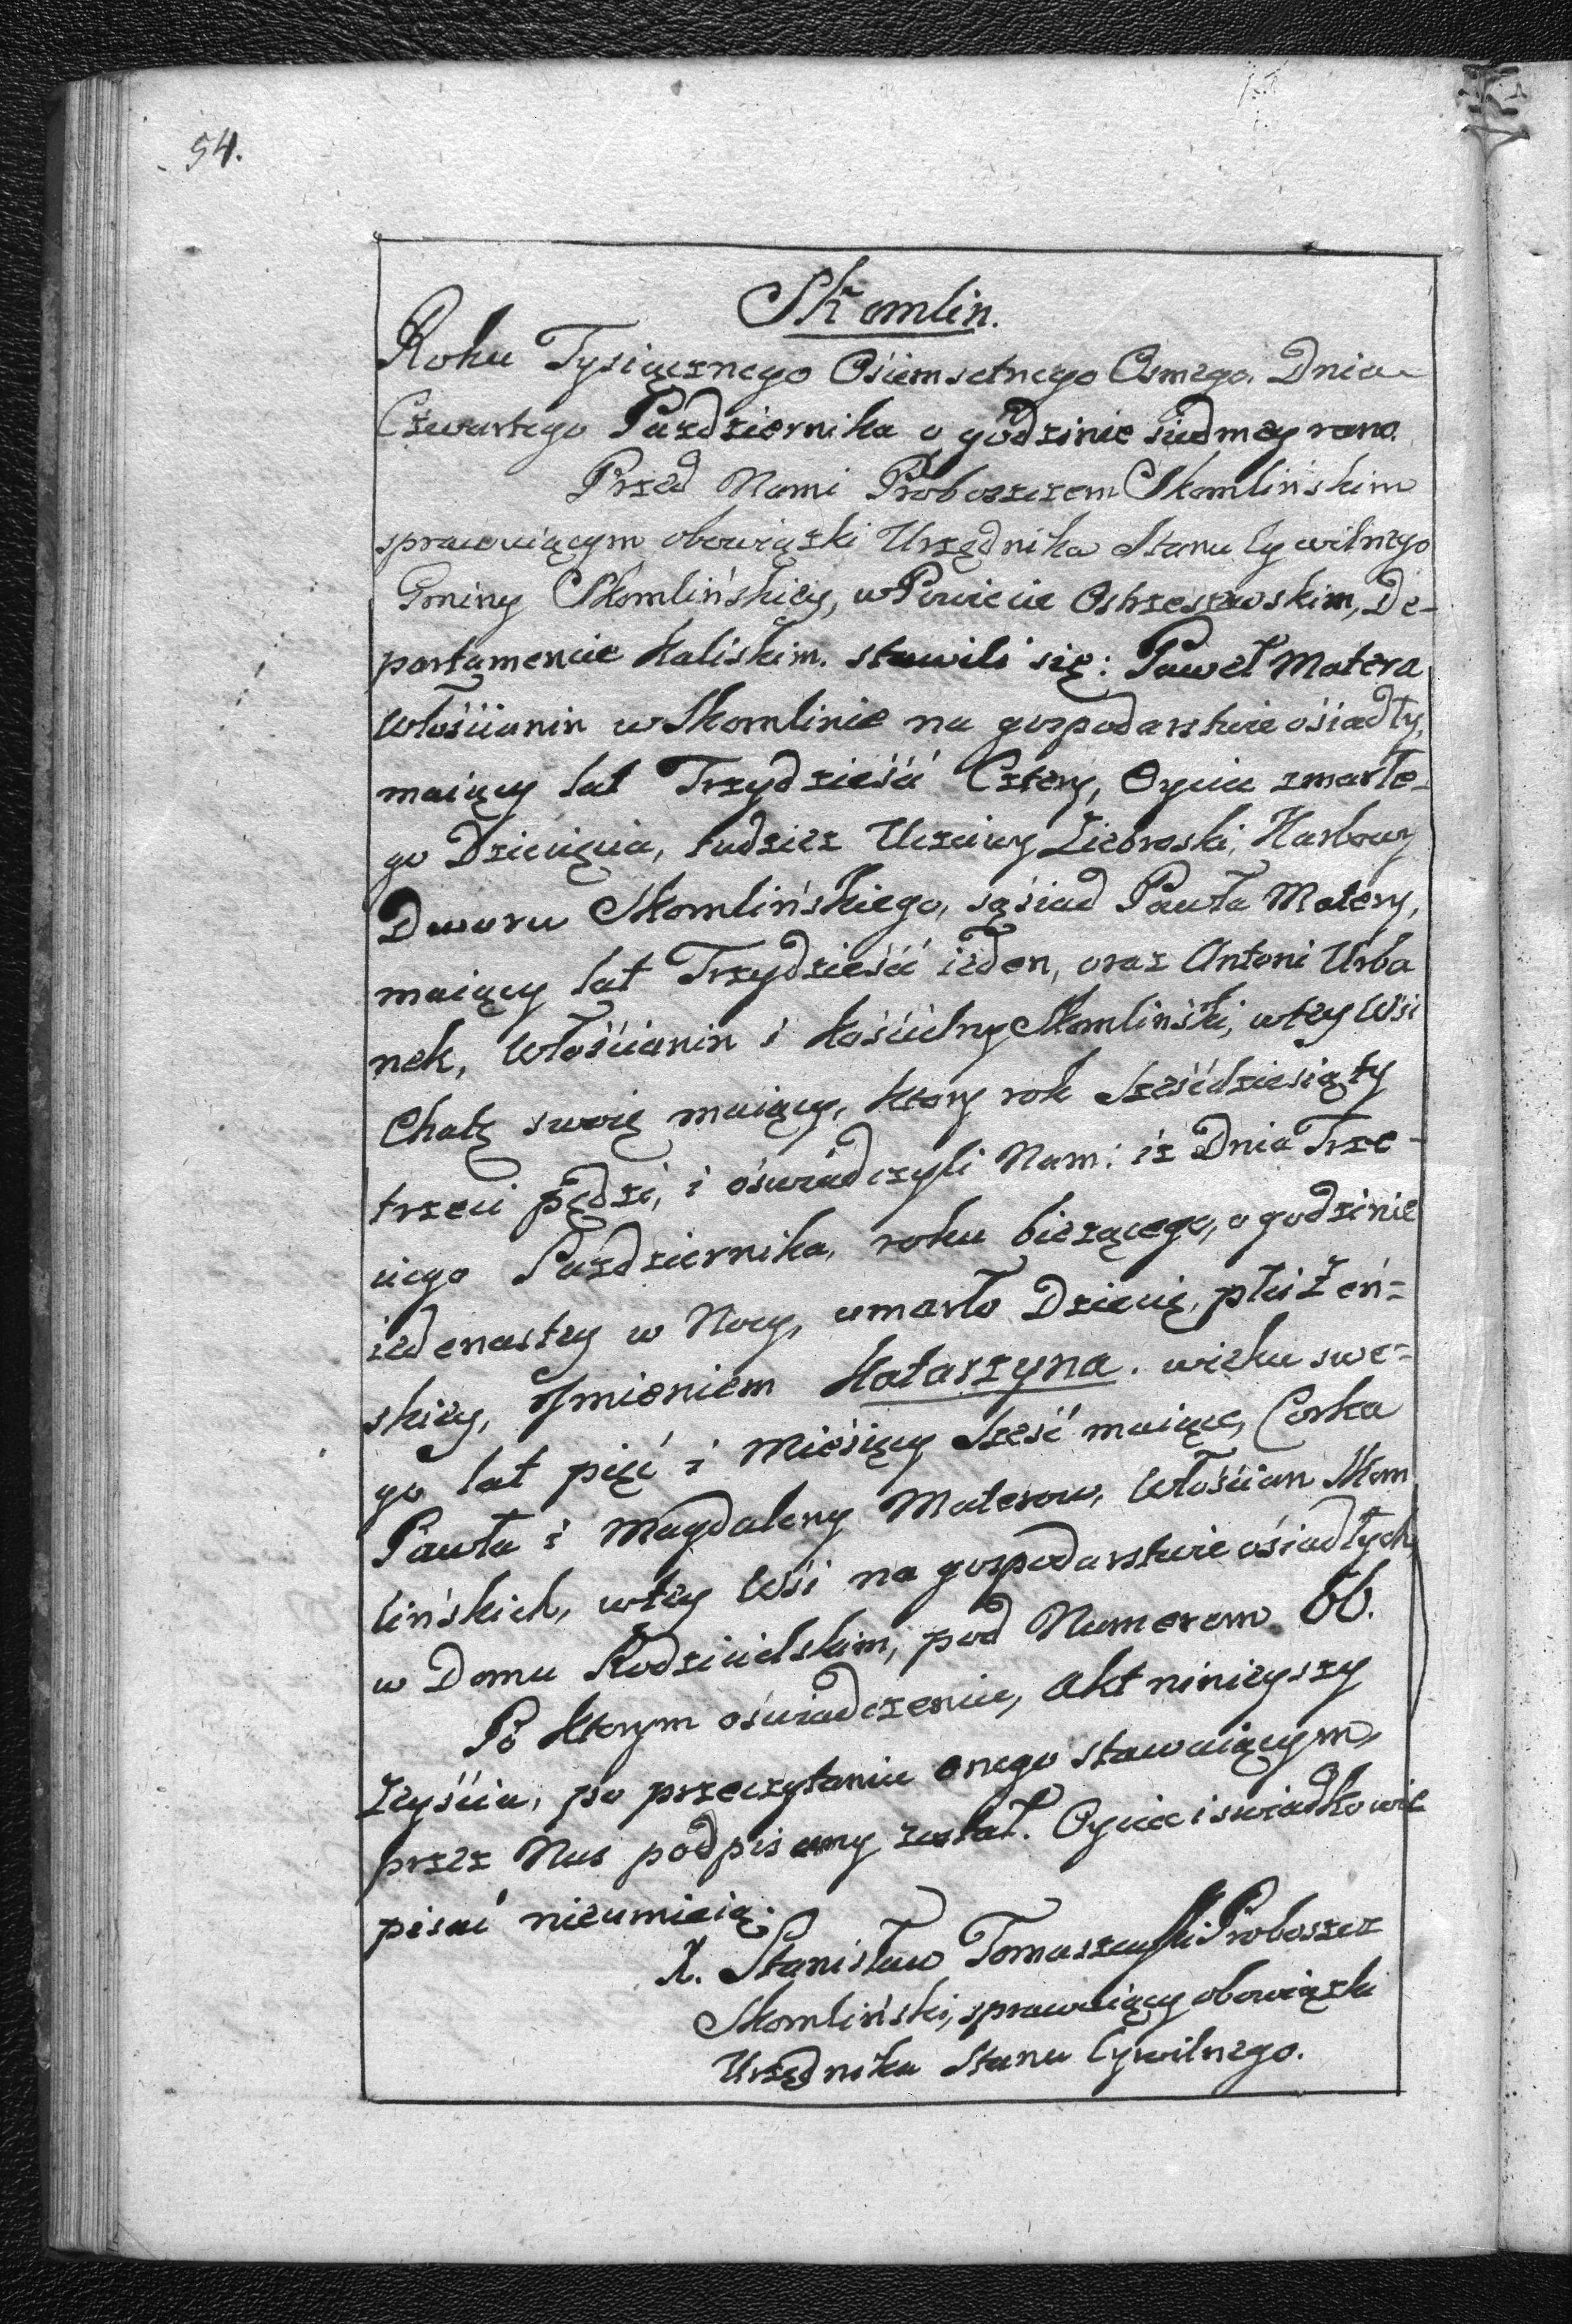 54.
Skomlin.
Roku Tysiącznego Ośiemsetnego Osmego. Dnia
Czwartego Pazdziernika o godzinie siudmey rano.
Przed Nami Proboszczem Skomlińskim
sprawuiącym obowiązki Urzędnika Stanu Cywilnego
Gminy Skomlińskiey, w Powiecie Ostrzeszowskim, De-
partamencie Kaliskim. stawili się: Paweł Matera
Włościanin w Skomlinie na gospodarstwie ośiadły,
maiący lat Trzydzieśći Cztery, Oyciec zmarłe-
go Dziecięcia, tudziez Uczciwy Ziebroski, Karbowy
Dworu Skomlińskiego, sąśiad Pawła Matery,
maiący lat Trzydzieśći ieden, oraz Antoni Urba
nek, Włościanin i kośćielny Skomliński, w tey Wśi
Chatę swoię maiący, ktory rok sześćdziesiąty
trzeci pędzi, i ośwíadczyli Nam: iz Dnia Trze-
ciego Pazdziernika, roku biezącego, o godzinie
iedenastey w Nocy, umarło Dziecię, płci Zeń=
skiey, Imieniem Katarzyna. wieku swe=
go lat pięć i Mieśięcy sześć maiące, Corka
Pawła i Magdaleny Materow, Włośćian Skom
lińskich, w tey Wśi na gospodarstwie ośiadłych
w Domu Rodzicielskim, pod Numerem 66.
Po ktorym oświadczeniu, Akt ninieyszy
Zeyśćia, po przeczytaniu onego stawaiącym,
przez Nas podpisany został. Oyciec i swiadkowie
pisać nieumieią.
X. Stanisław Tomaszewski Proboszcz
Skomliński, sprawuiący obowiązki
Urzędnika Stanu Cywilnego.